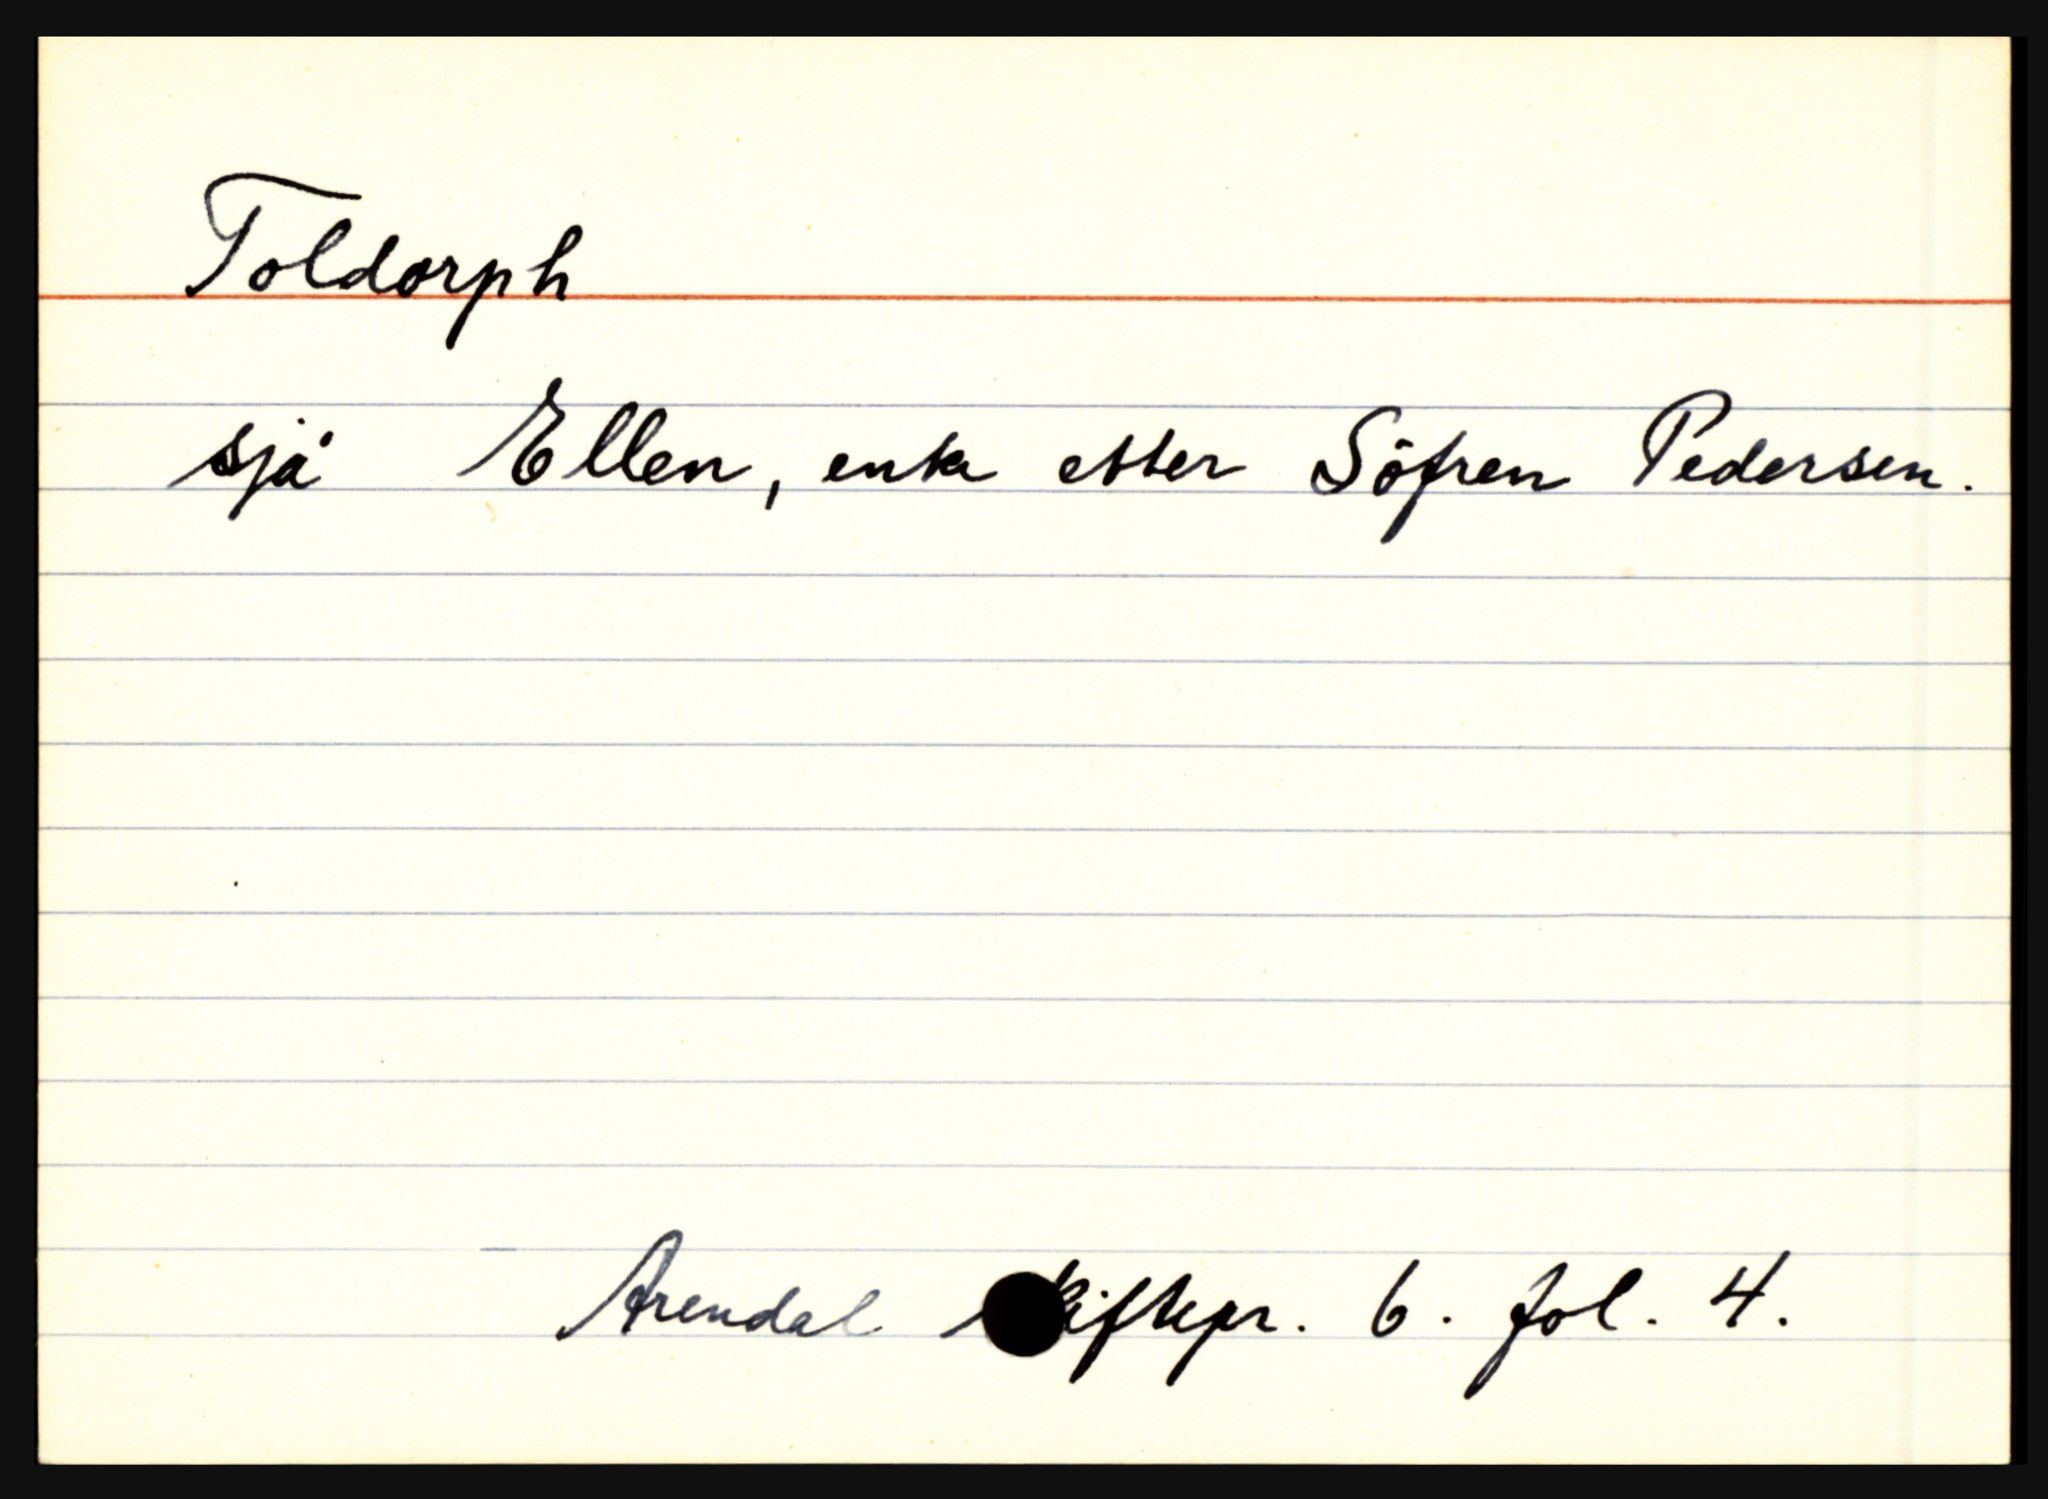 Toldorph
sjå Ellen, enke etter Söfren Pedersen.
Arendal skiftepr. 6. fol. 4.